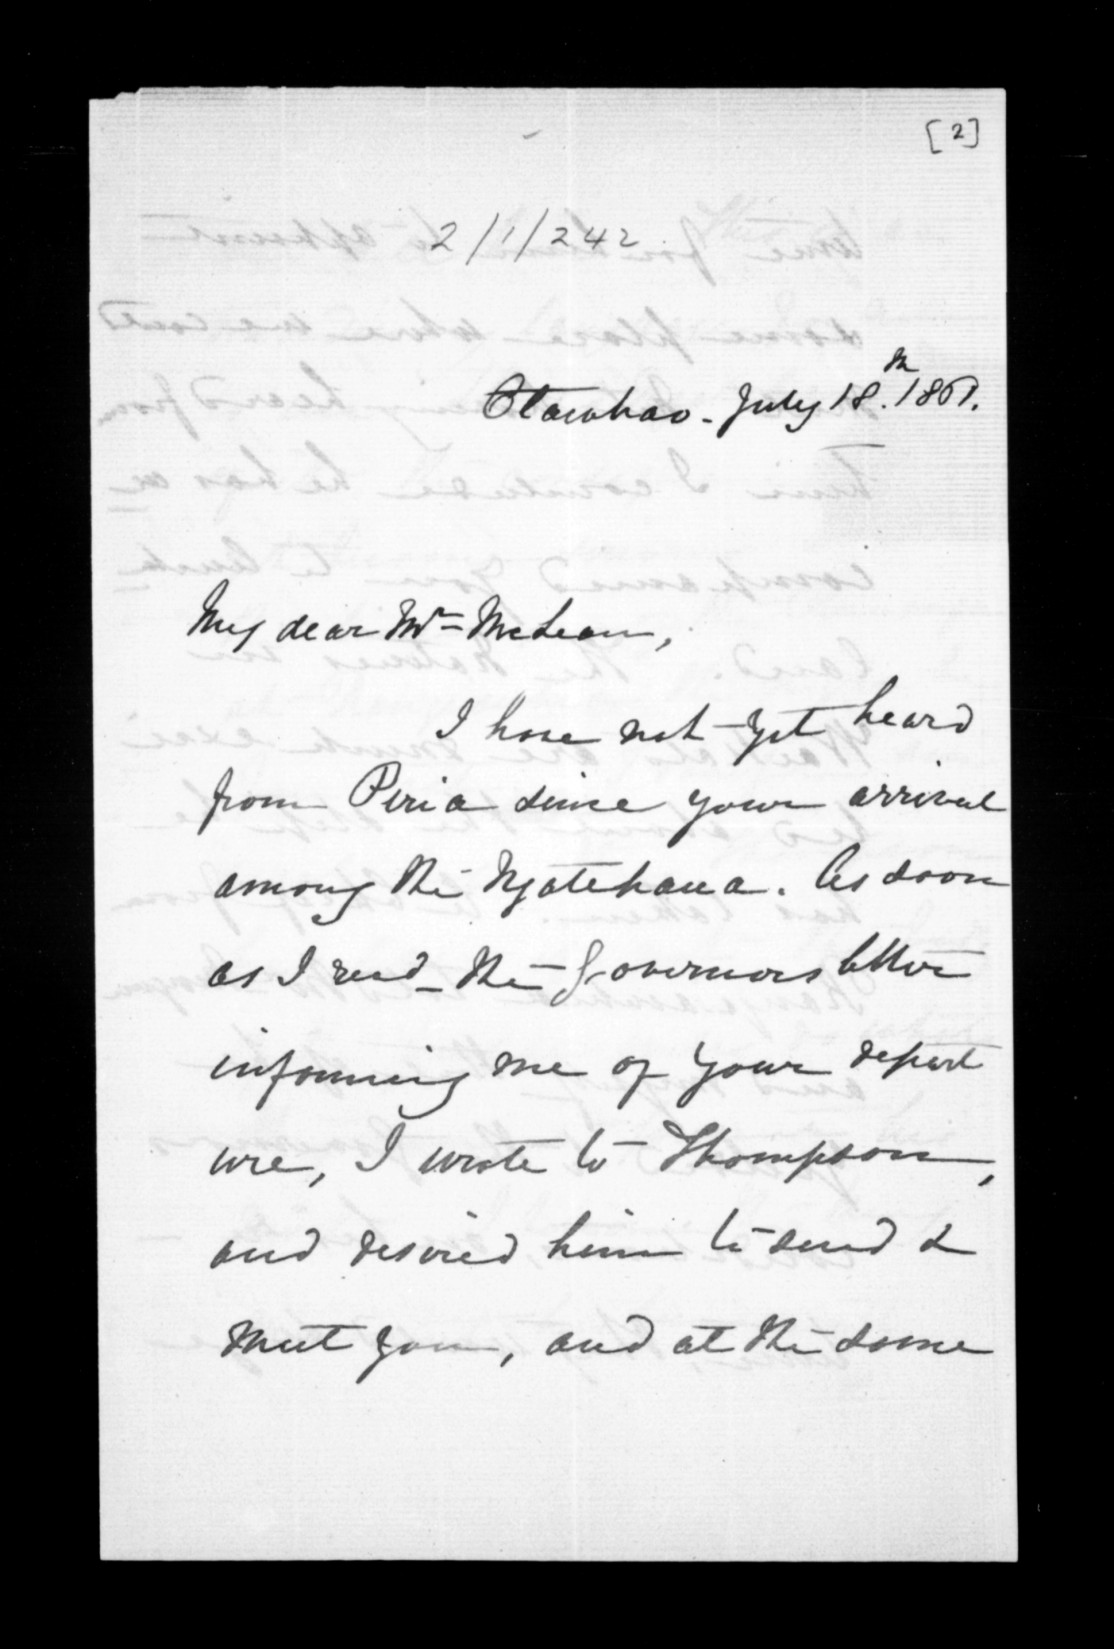 [2]
2/1/242
Otawhao - July 18.th 1861.
My dear Mr McLean,
I have not yet heard
from Piria since your arrival
among the Ngatehaua. As soon
as I recd the Governors letter
informing me of your depart
ure, I wrote to Thompson,
and desired him to send &
meet you, and at the same